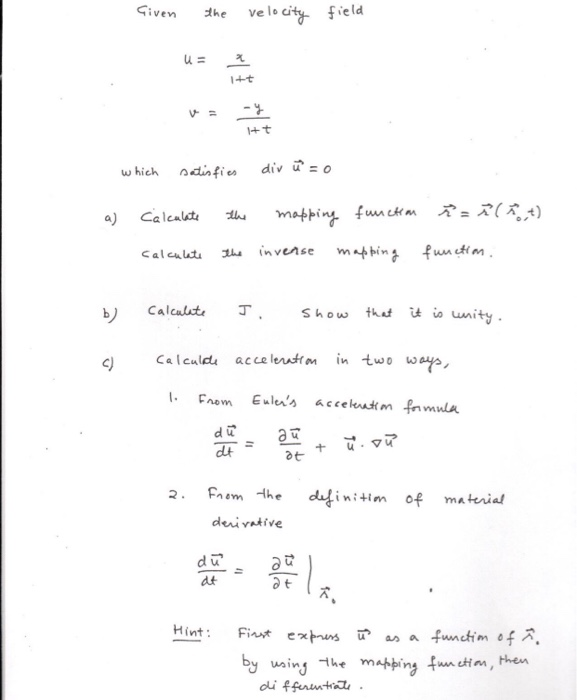 Given the velocity field
u = x / 1+t
v = -y / 1+t
which satisfies div u⃗ = 0
a) Calculate the mapping function x⃗ = x⃗(x⃗₀,t)
Calculate the inverse mapping function.
b) Calculate J. Show that it is unity.
c) Calculate acceleration in two ways,
1. From Euler's acceleration formula
du⃗/dt = ∂u⃗/∂t + u⃗·∇u⃗
2. From the definition of material
derivative
du⃗/dt = ∂u⃗/∂t |x⃗₀
Hint: First express u⃗ as a function of x⃗₀
by using the mapping function, then
differentiate.